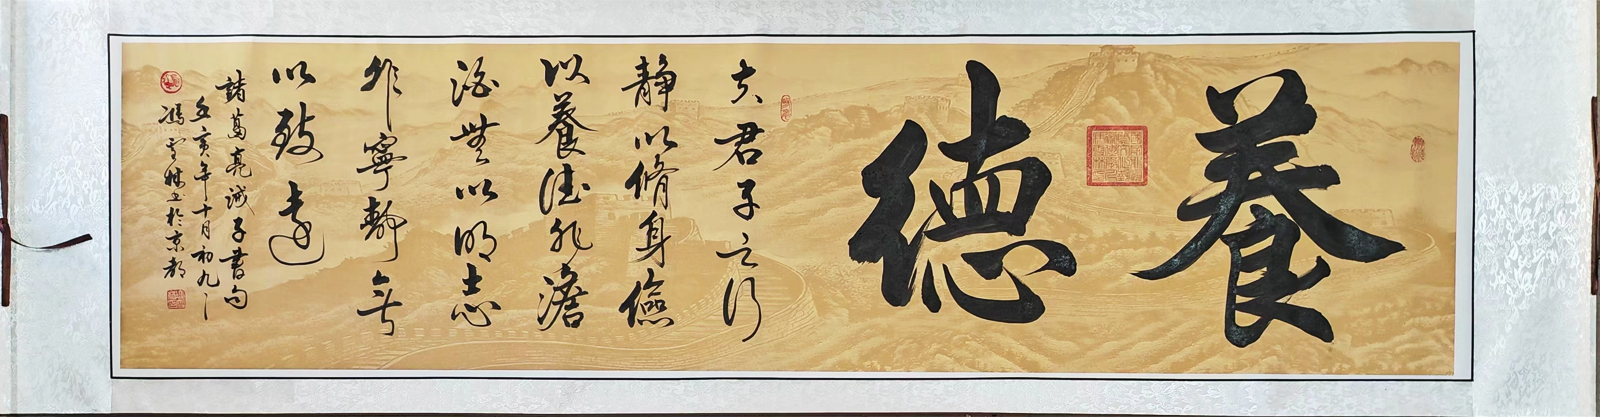 養德
夫君子之行
静以脩身儉
以養德非澹
泊無以明志
非寧靜無
以致遠
諸葛亮誡子書句
年十月初九
馮雪林书於京都